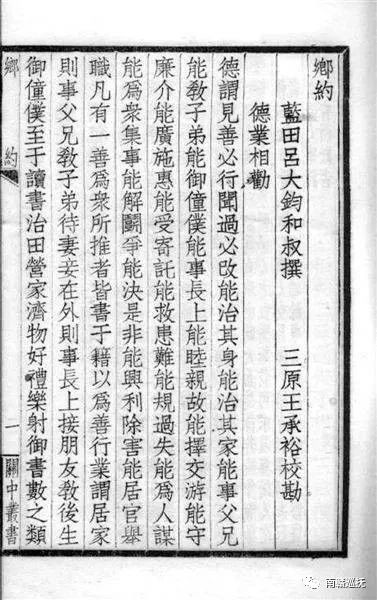 鄉約
藍田呂大鈞和叔撰 三原王承裕校勘
德業相勸
德謂見善必行聞過必改能治其身能治其家能事父兄
能教子弟能御僮僕能事長上能睦親故能擇交游能守
廉介能廣施惠能受寄託能救患難能規過失能爲人謀
能爲衆集事能解鬭爭能決是非能興利除害能居官舉
職凡有一善爲衆所推者皆書于籍以爲善行業謂居家
則事父兄教子弟待妻妾在外則事長上接朋友教後生
御僮僕至于讀書治田營家濟物好禮樂射御書數之類
鄉約 一 關中叢書
南赣巡抚